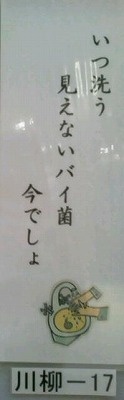 いつ洗う
見えないバイ菌
今でしょ
川柳ー17